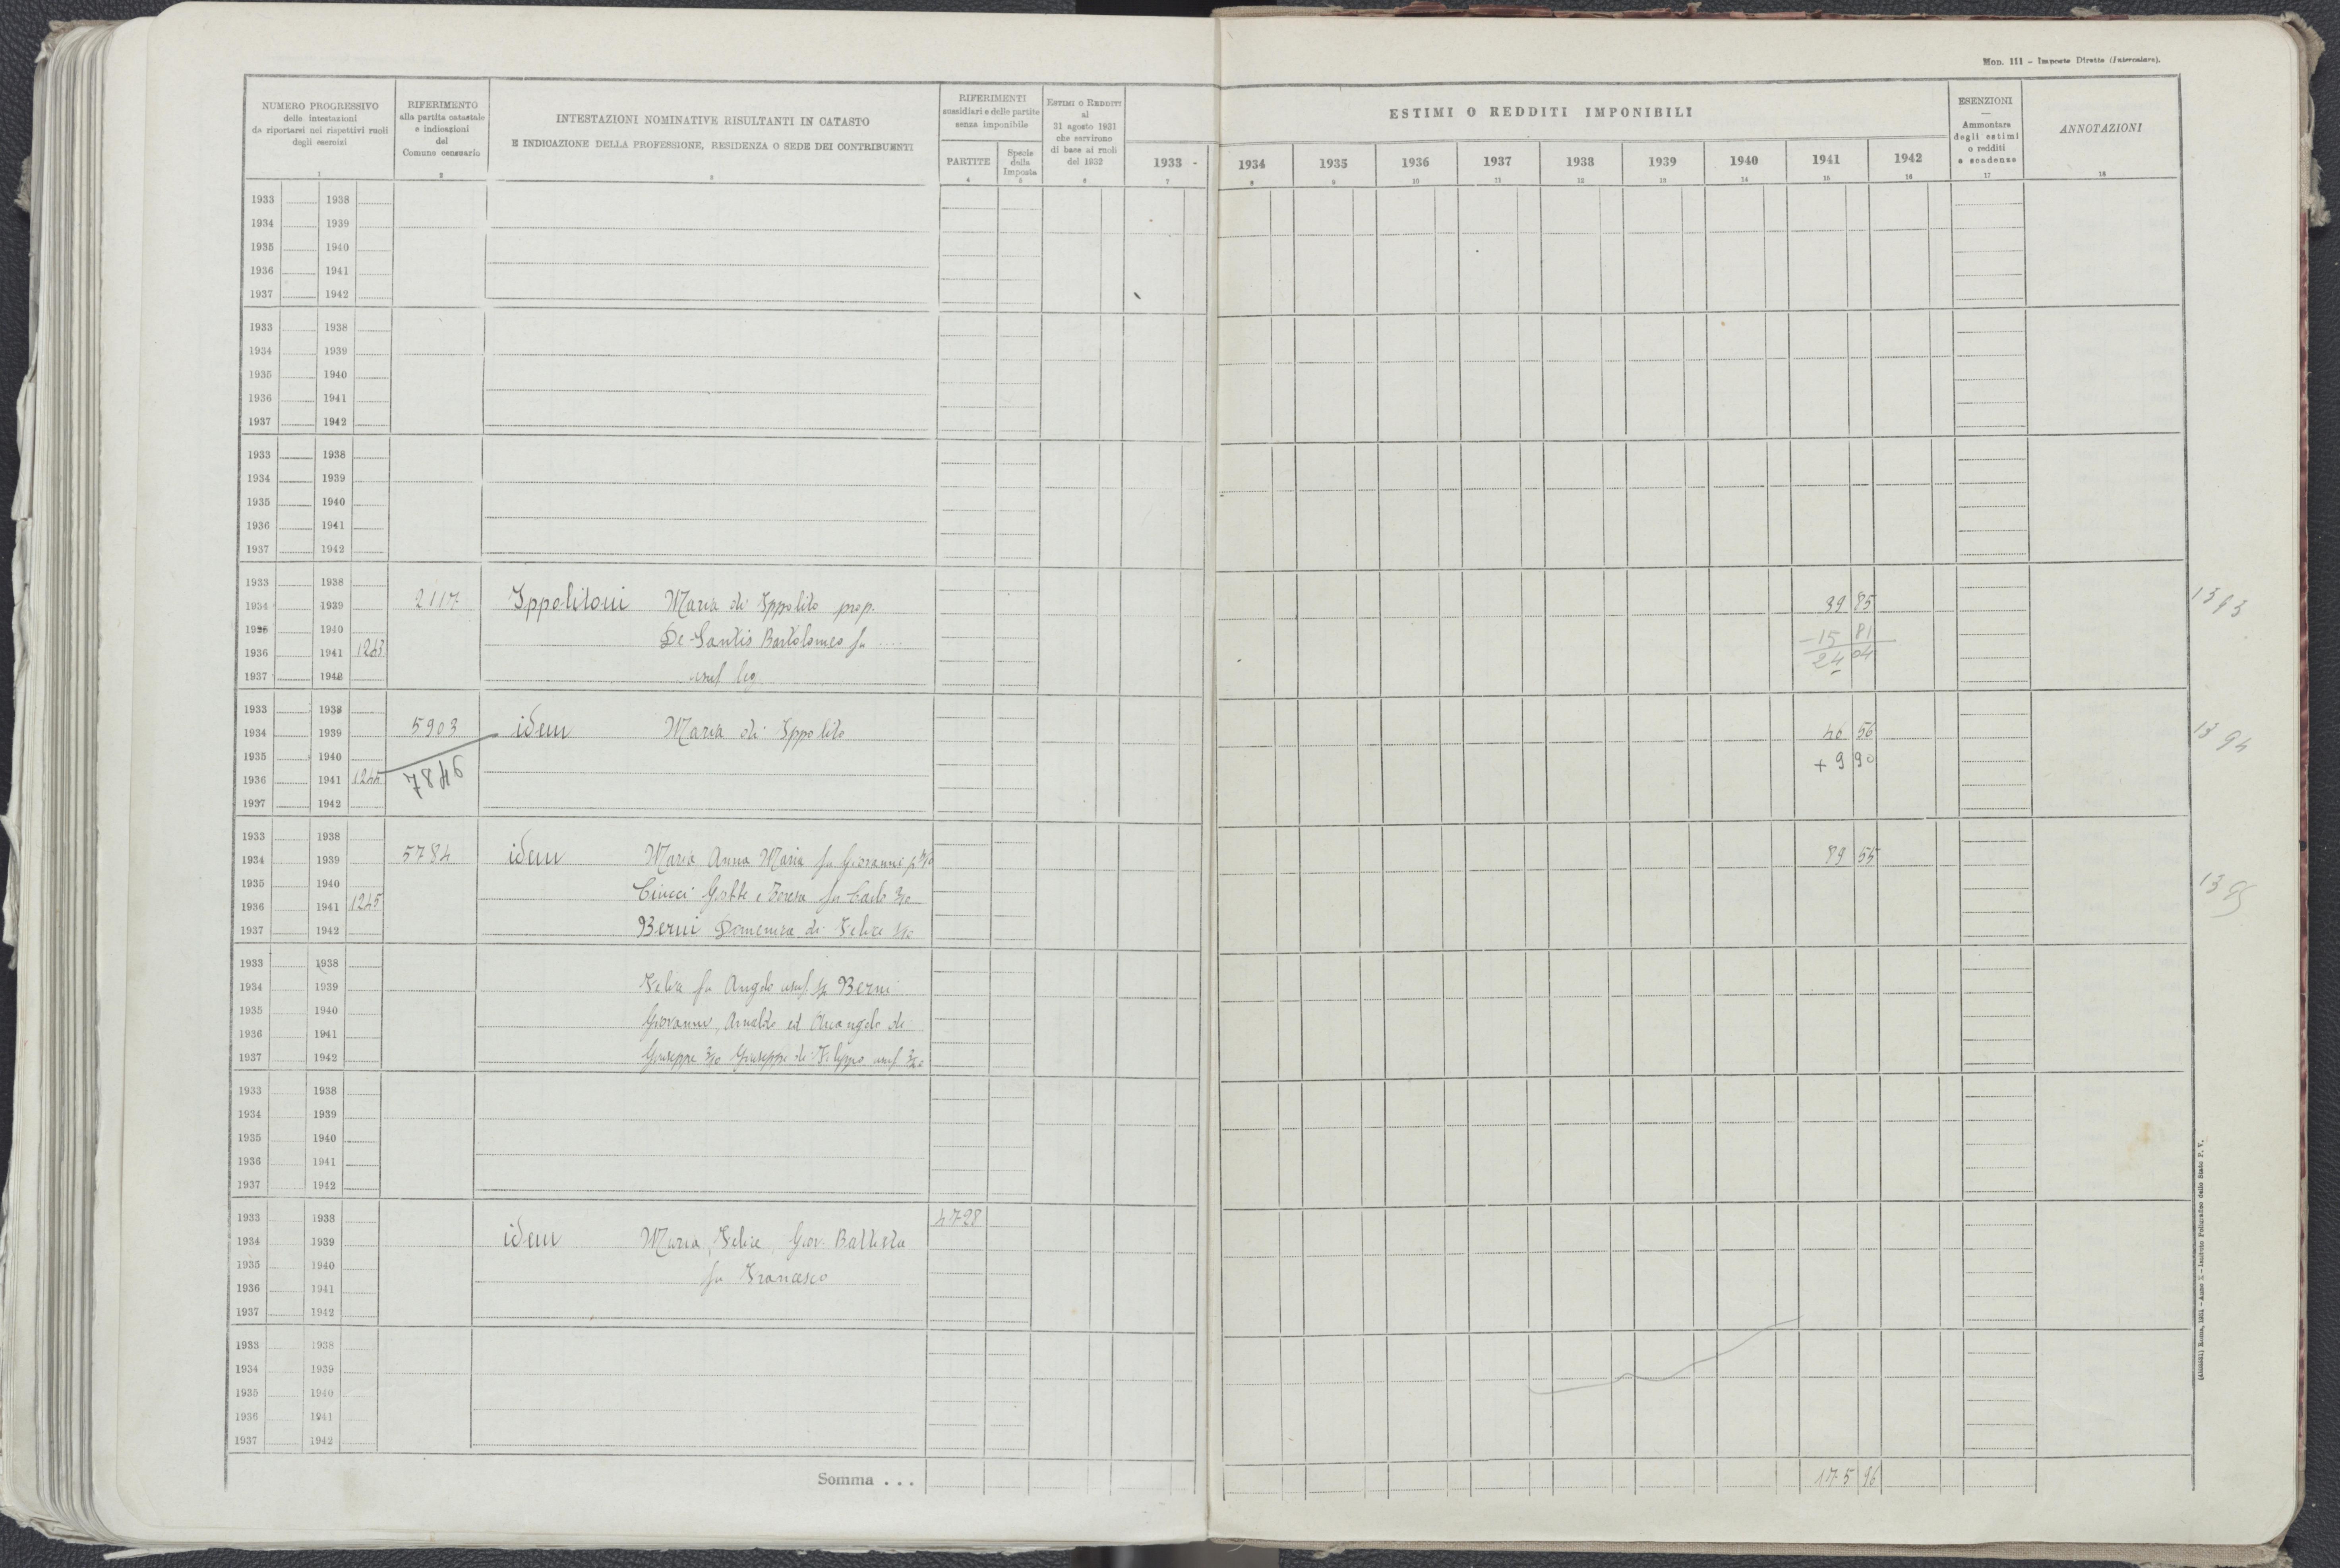 Mod. 111 – Imposte Dirette (Intercalare).
NUMERO PROGRESSIVO
delle intestazioni
da riportarsi nei rispettivi ruoli
degli esercizi
1
RIFERIMENTO
alla partita catastale
e indicazioni
del
Comune censuario
2
INTESTAZIONI NOMINATIVE RISULTANTI IN CATASTO
E INDICAZIONE DELLA PROFESSIONE, RESIDENZA O SEDE DEI CONTRIBUENTI
3
RIFERIMENTI
sussidiari e delle partite
senza imponibile
PARTITE
4
Specie
della
Imposta
5
ESTIMI O REDDITI
al
31 agosto 1931
che servirono
di base ai ruoli
del 1932
6
ESTIMI O REDDITI IMPONIBILI
1933 - 1934 1935 1936 1937 1938 1939 1940 1941 1942
7 8 9 10 11 12 13 14 15 16
ESENZIONI
—
Ammontare
degli estimi
o redditi
e scadenze
17
ANNOTAZIONI
18
1933 1938
1934 1939
1935 1940
1936 1941
1937 1942
1933 1938
1934 1939
1935 1940
1936 1941
1937 1942
1933 1938
1934 1939
1935 1940
1936 1941
1937 1942
1933 1938
1934 1939 2117 Ippolitoni Maria di Ippolito prop. 39 85
1935 1940 De-Santis Bartolomeo fu .... – 15 81
1936 1941 1243 24 04
1937 1942 usuf leg.
1933 1938
1934 1939 5903 idem Maria di Ippolito 46 56 1394
1935 1940 + 9 90
1936 1941 1244 7846
1937 1942
1933 1938
1934 1939 5784 idem Maria Anna Maria fu Giovanni 89 55
1935 1940 Ciucci e Teresa fu Carlo 3/10 1395
1936 1941 1245
1937 1942 Berni Domenica di Felice
1933 1938
1934 1939 Felice fu Angelo usuf. Berni
1935 1940
1936 1941 Giovanni, Arnaldo ed Arcangelo di
1937 1942 Giuseppe 3/10 Giuseppe di Filippo usuf.
1933 1938
1934 1939
1935 1940
1936 1941
1937 1942
1933 1938 4728
1934 1939 idem Maria, Felice, Giov. Battista
1935 1940 fu Francesco
1936 1941
1937 1942
1933 1938
1934 1939
1935 1940
1936 1941
1937 1942
Somma . . . 175 96
Roma, 1931 – Anno X – Istituto Poligrafico dello Stato P. V.